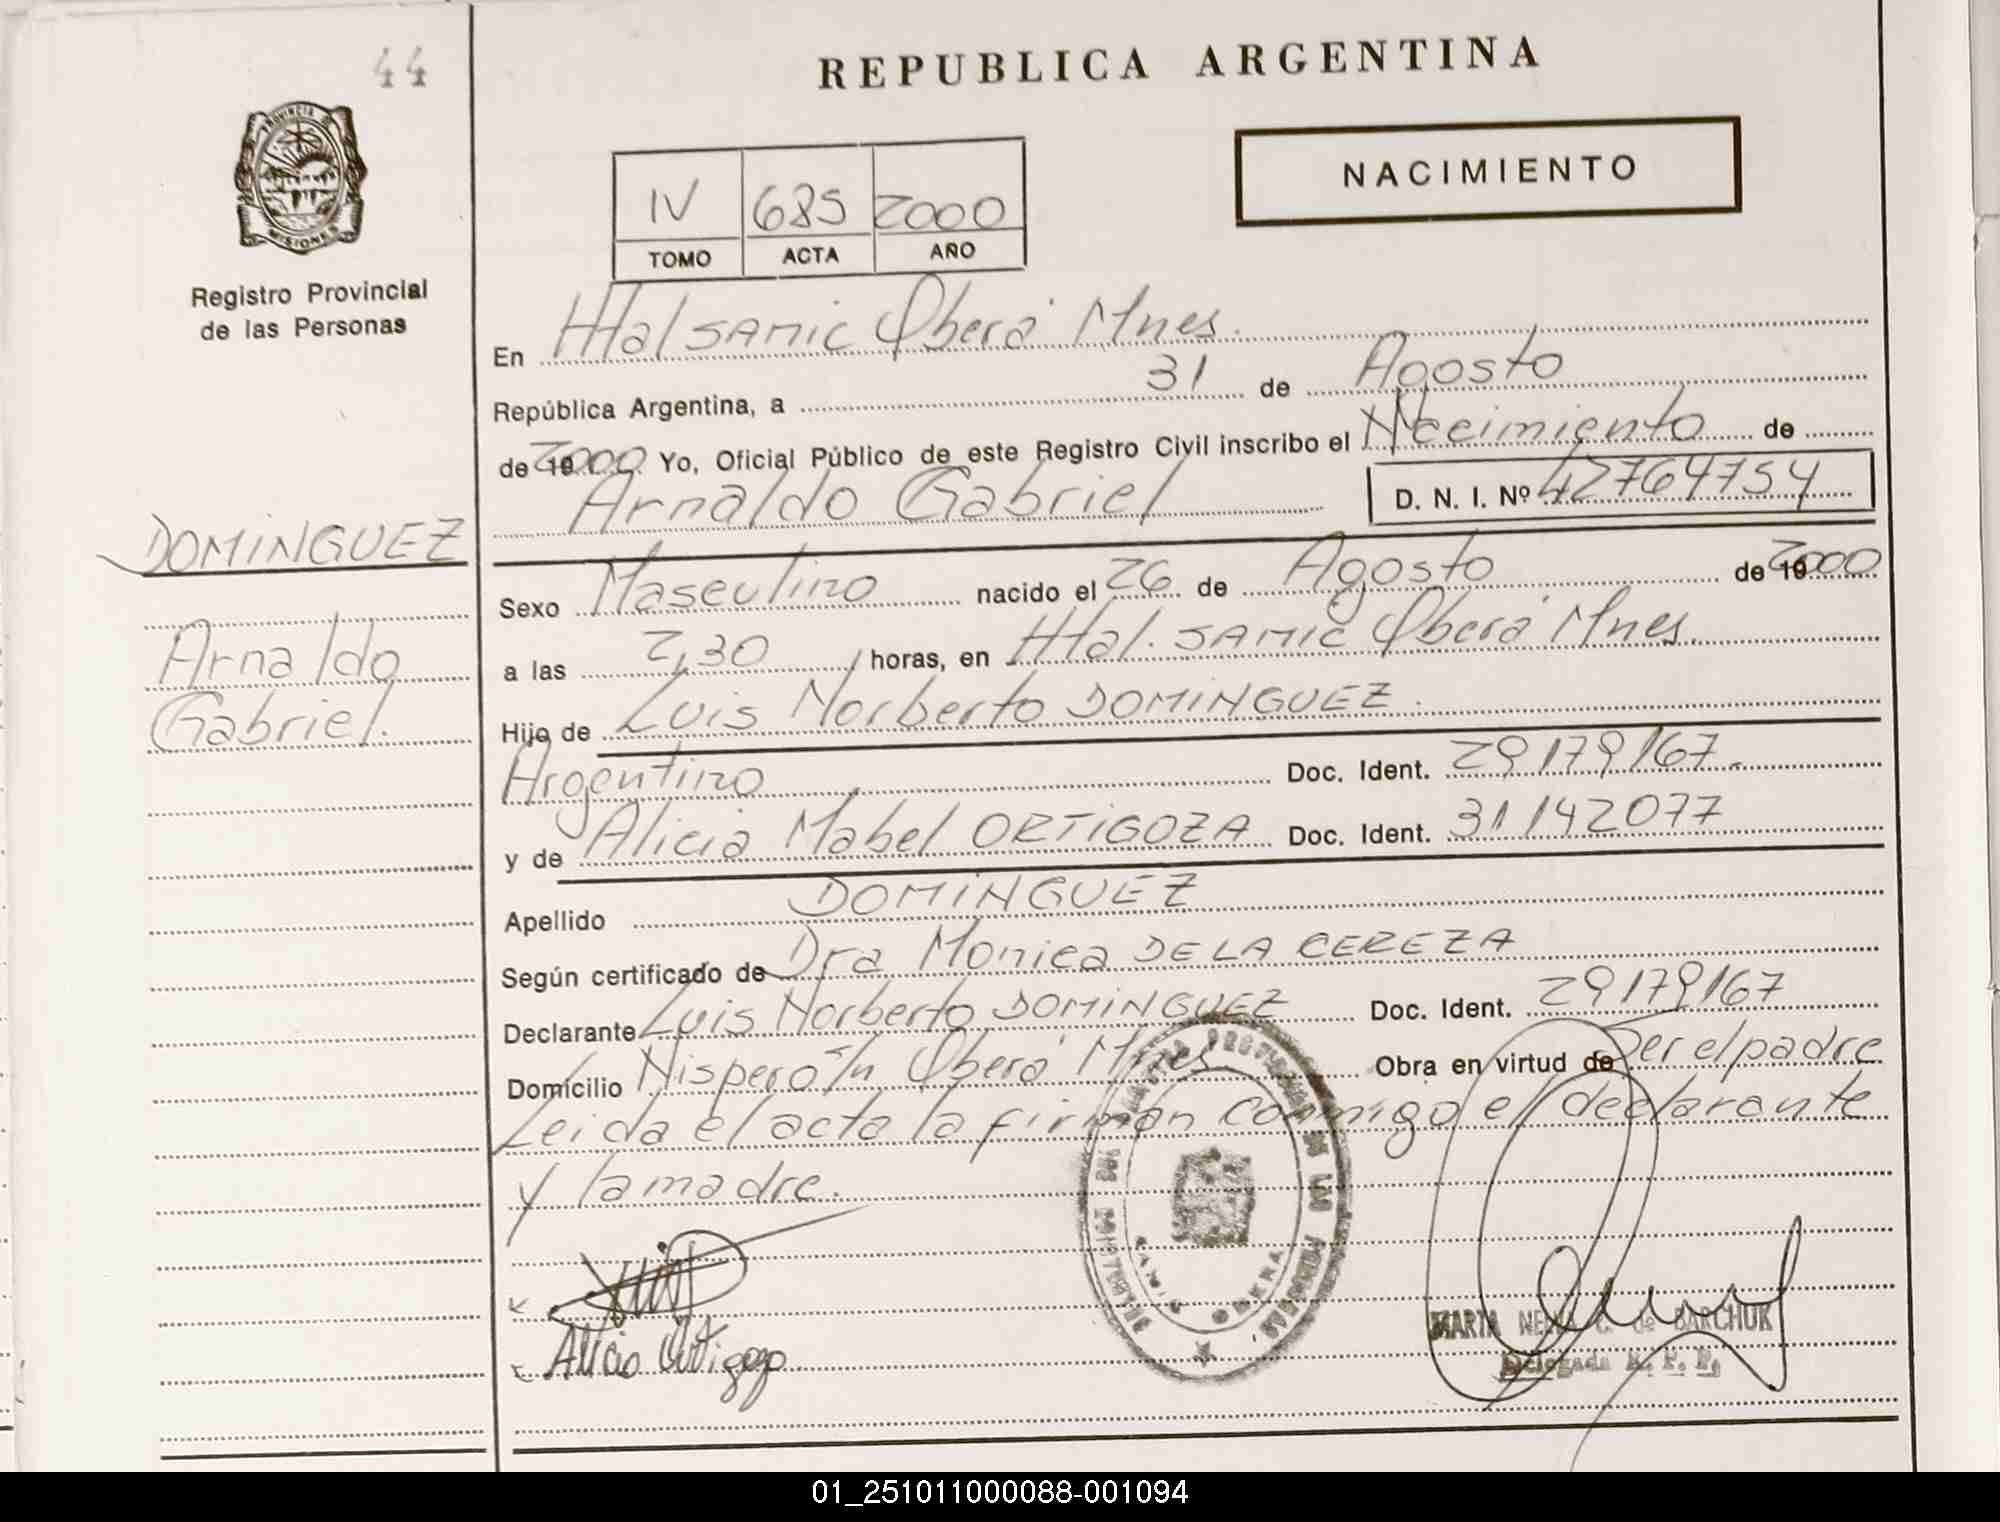 44
REPUBLICA ARGENTINA
PROVINCIA D
MISIONES
Registro Provincial
de las Personas
IV 685 2000
TOMO ACTA AÑO
NACIMIENTO
En Htal SAMIC Oberá Mnes.
República Argentina, a 31 de Agosto
de 2000 Yo, Oficial Público de este Registro Civil inscribo el Nacimiento de
Arnaldo Gabriel D. N. I. Nº 42764754
DOMINGUEZ
Arnaldo
Gabriel.
Sexo Masculino nacido el 26 de Agosto de 2000
a las 2,30 horas, en Htal. SAMIC Oberá Mnes.
Hijo de Luis Norberto DOMINGUEZ.
Argentino Doc. Ident. 29179167.
y de Alicia Mabel ORTIGOZA Doc. Ident. 31142077
Apellido DOMINGUEZ
Según certificado de Dra Monica DE LA CEREZA
Declarante Luis Norberto DOMINGUEZ Doc. Ident. 29179167
Domicilio Nispero s/n Oberá Mnes Obra en virtud de Ser el padre
Leida el acta la firman conmigo el declarante
y la madre.
Alicia Ortigoza
DE LAS PERSONAS
SAMIC OBERA
MARTA C. de BARCHUK
Delegada R. P. P.
01_251011000088-001094